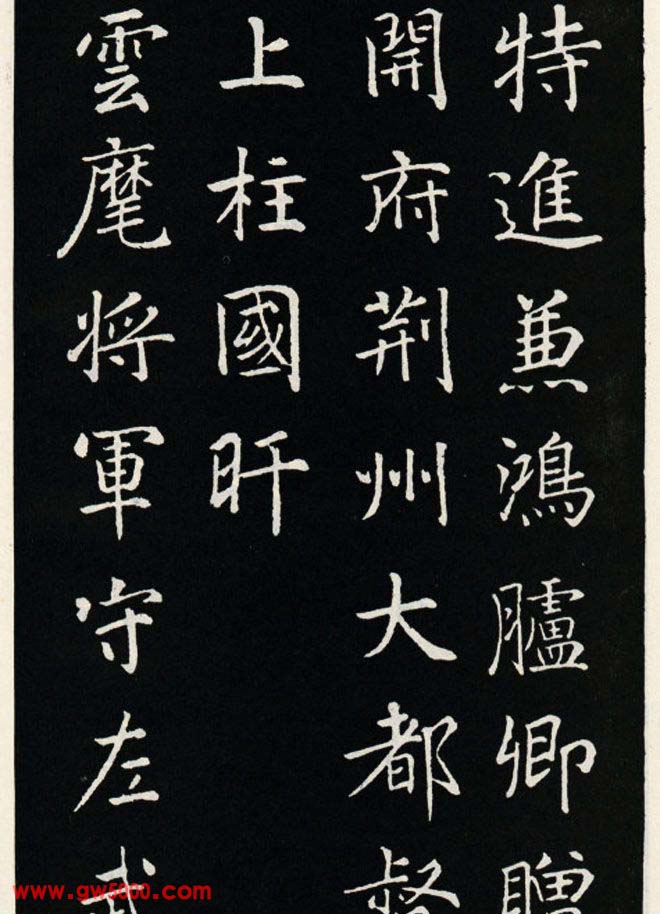 特進兼鴻臚卿贈
開府荊州大都督
上柱國旰
雲麾將軍守左武
www.gw5000.com